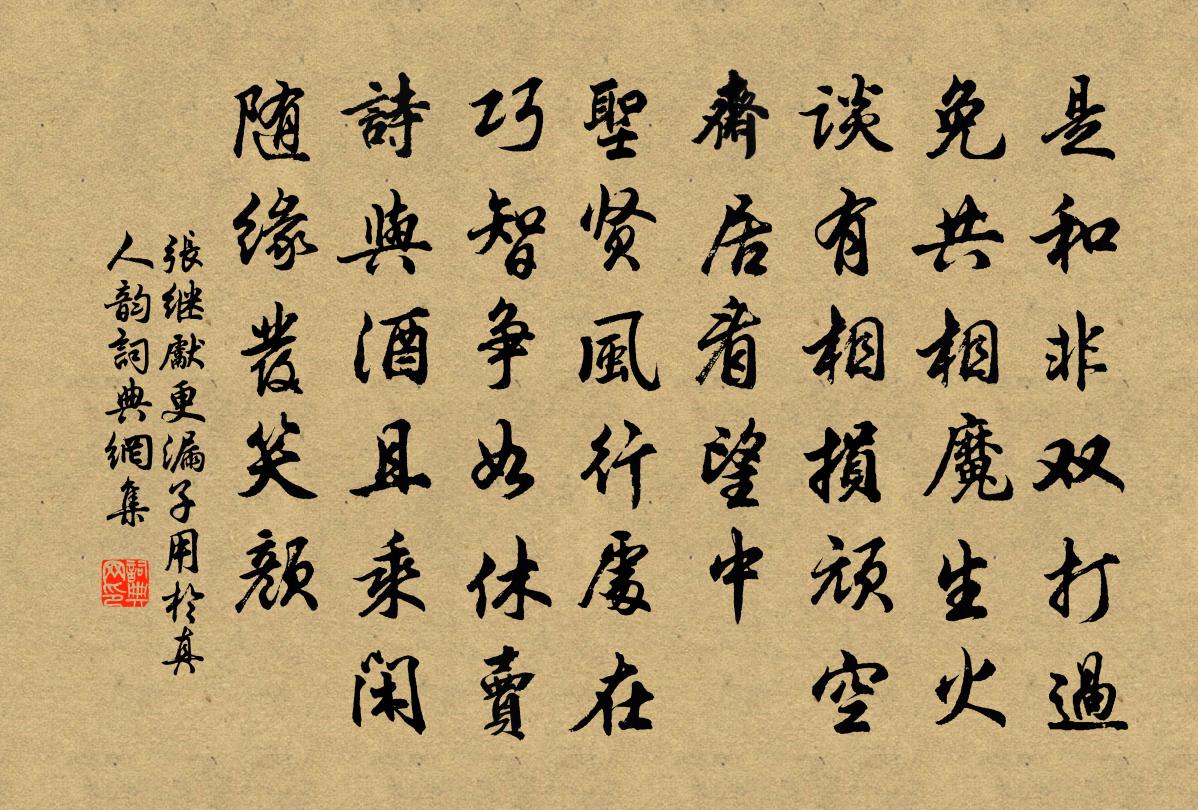 是和非双打過
免共相魔生火
谈有相損顽空
齋居看望中
聖贤風行處在
巧智争如休賣
詩與酒且乘闲
随缘發笑颜
張继獻更漏子用於真
人韵詞典網集
詞典网印